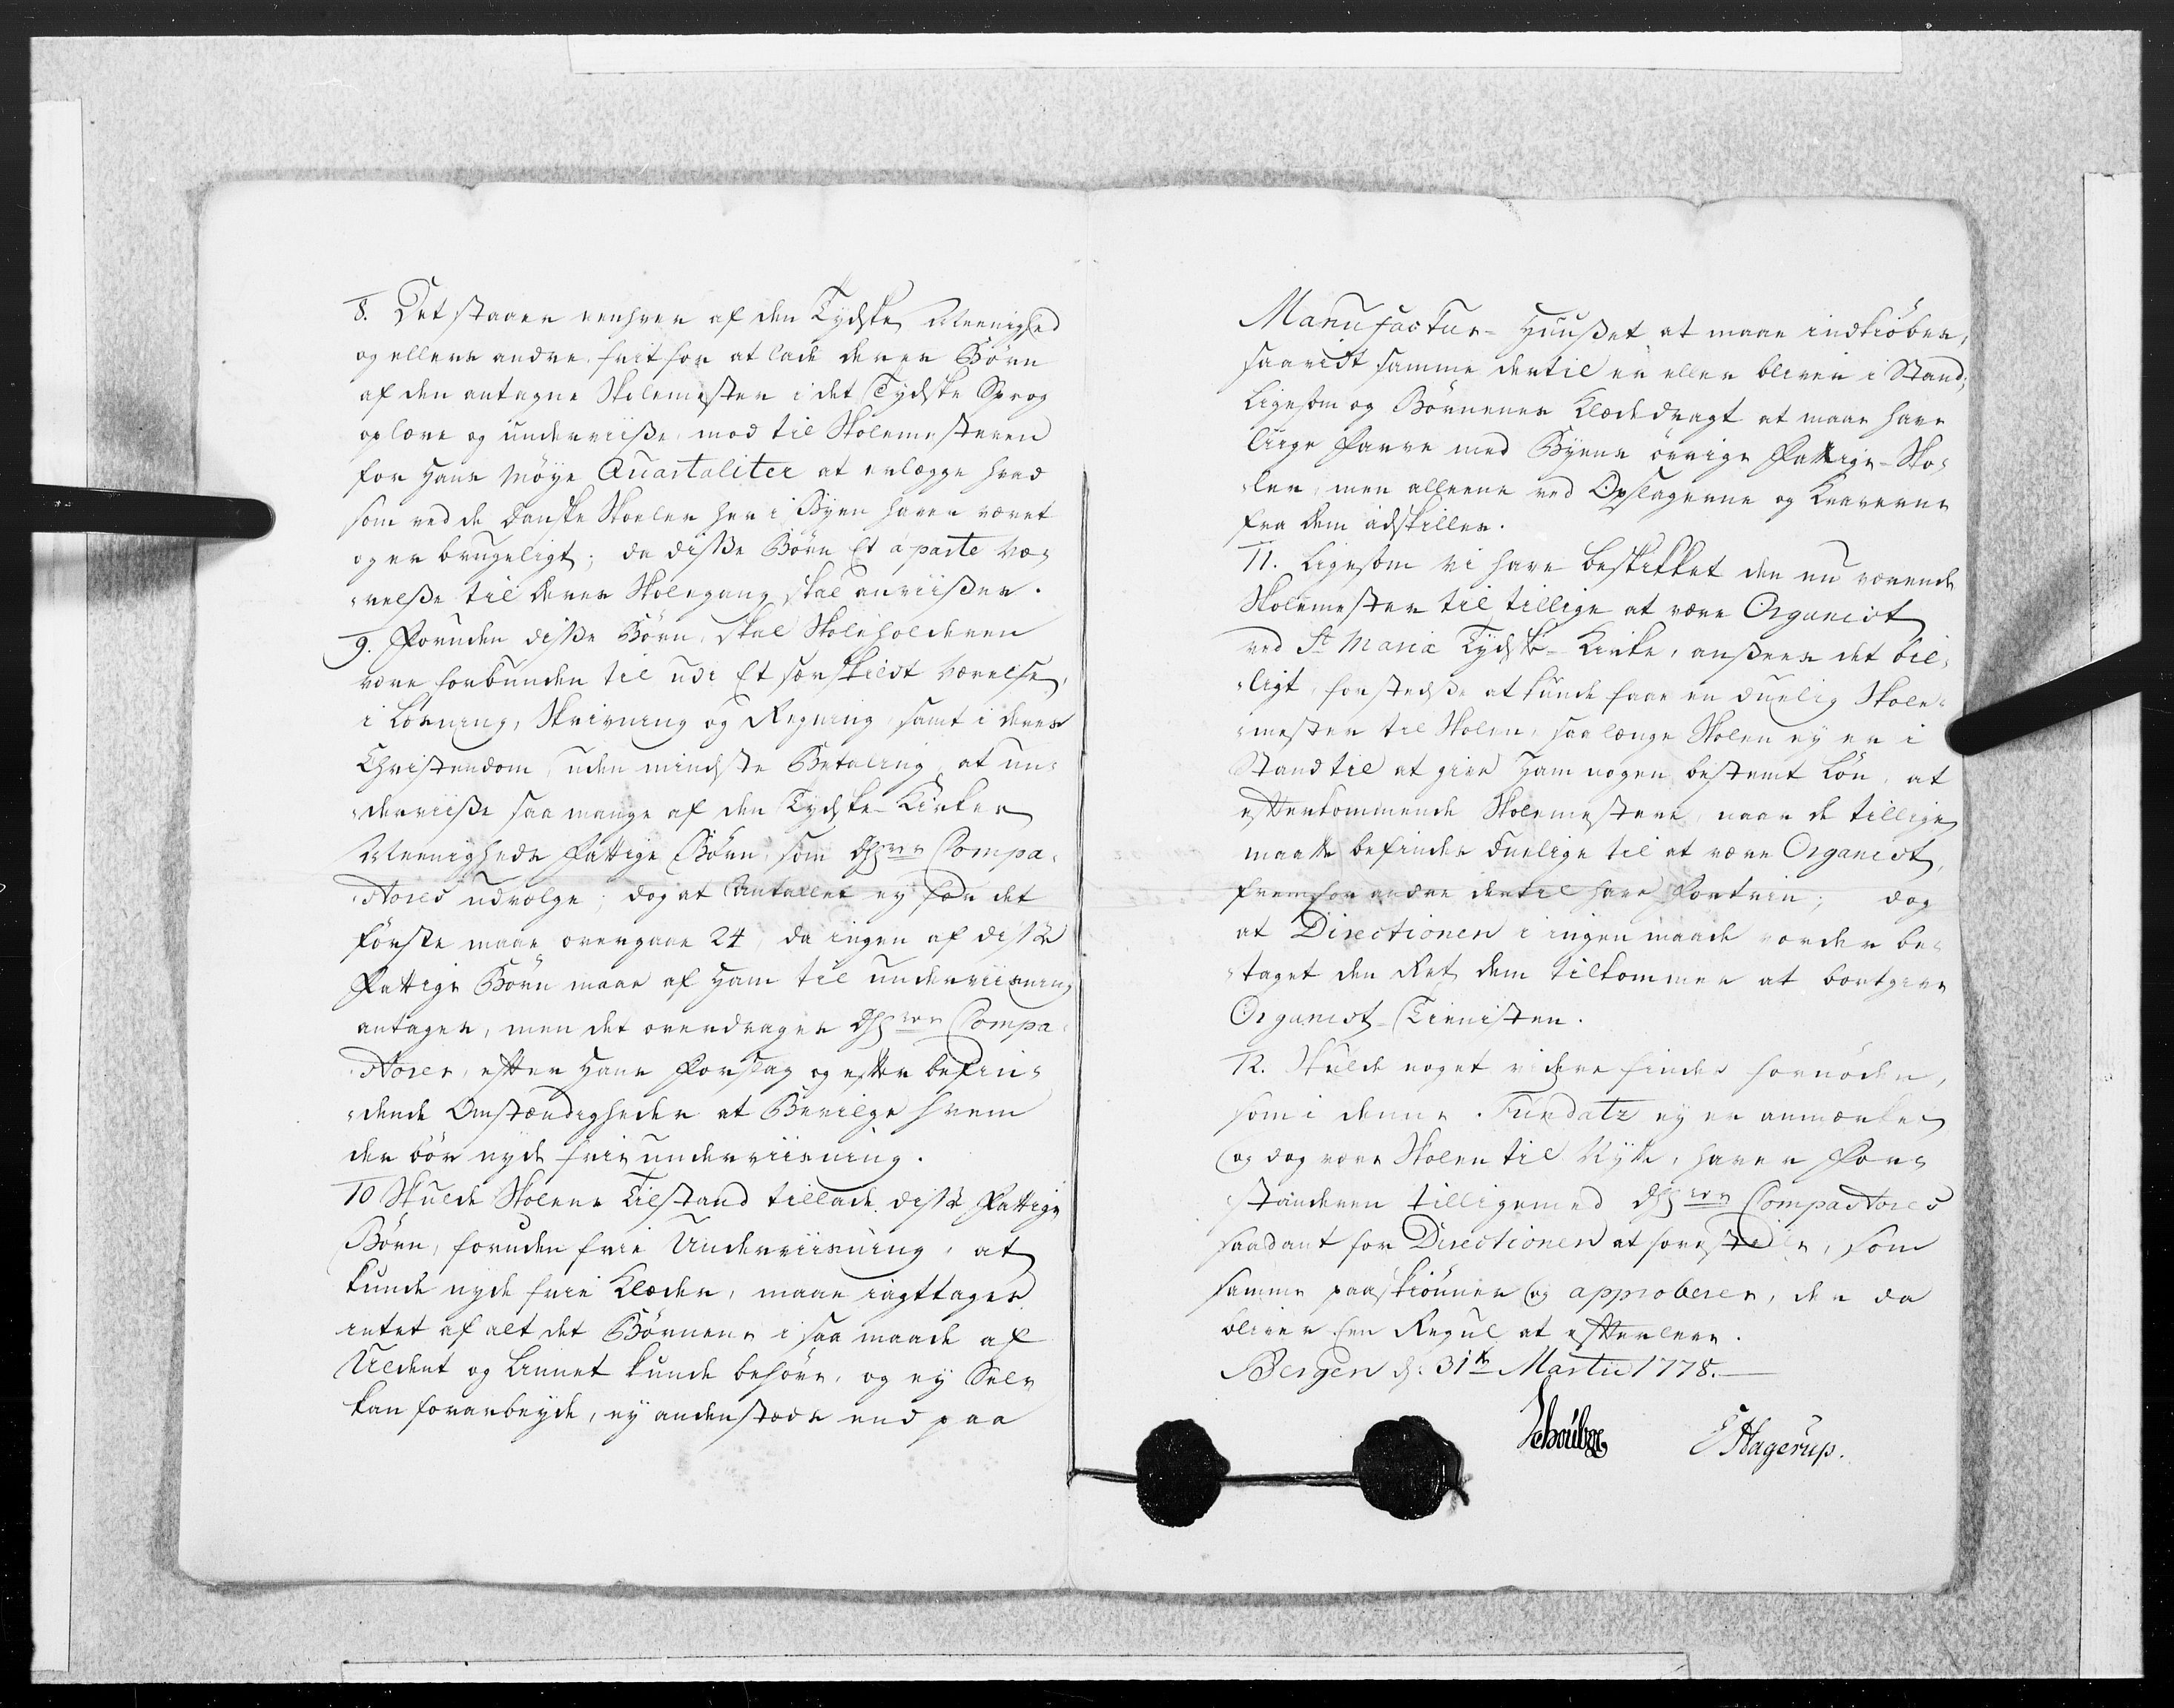 8. Det staaer eenhver af den Tydske Meenighed
og ellers andre frit for at lade deres Börn
af den antagne Skolemester i det Tydske Sprog
oplære og underviise, mod til Skolemesteren
for Hans Möye Quartaliter at erlægge hvad
som ved de Danske Skoeler her i Byen haver været
og er brugeligt; da disse Börn Et aparte Væ-
-relse til deres Skolegang skal anviises.
9. Foruden disse Börn, skal Skoleholderen
være forbunden til udi Et særskildt Værelse,
i Læsning, Skrivning og Regning, samt i deres
Christendom, uden mindste Betaling, at un-
-derviise saa mange af den Tydske Kirkes
Meenigheds Fattige Börn, som Hrr. Compa-
-stores udvelge; dog at Antallet ey for det
förste maae overgaae 24, da ingen af disse
Fattige Börn maae af Ham til underviisning
antages, men det overdrages Hrr. Compa-
-stores, efter Hans Forslag og efter befin-
-dende Omstændigheder at Bevilge hvem
der bör nyde frie underviisning.
10 Skulde Skolens Tilstand tillade disse Fattige
Börn, foruden frie Underviisning, at
kunde nyde frie Klæder, maae iagttages
intet af alt det Börnene i saa maade af
Uldent og Linnet kunde behöve, og ey Selv
kan forarbeyde, ey andenstæds end paa
Manufactur-Huuset at maae indkiöbes,
saavidt samme dertil er eller bliver i Stand;
Ligesom og Börnenes Klædedragt at maae have
liige Farve med Byens övrige Fattige-Sko-
-ler, men alleene ved Opslagerne og Kraverne
fra dem adskilles.
11. Ligesom vi have beskikket den nu værende
Skolemester til tillige at være Organist
ved St Mariæ Tydske Kirke, ansees det bil-
-ligt, for stedse at kunde faae en duelig Skole-
-mester til Skolen, saalænge Skolen ey er i
Stand til at give Ham nogen bestemt Lön, at
efterkommende Skolemestere, naar de tillige
maatte befindes duelige til at være Organist,
frem for andre dertil have Fortrin; dog
at Directionen i ingen maade vorder be-
-taget den Ret, dem tilkommer at bortgive
Organist-Tienisten.
12. Skulde noget videre findes fornöden,
som i denne Fundatz ey er anmærket
og dog være Skolen til Nytte, haver For-
-standeren tilligemed Hrr. Compastores
saadant for Directionen at forestille, som
samme paaskiönner og approberer, der da
bliver Een Regul at efterleve.
Bergen d: 31te Martii 1778.
Schoubge E Hagerup.